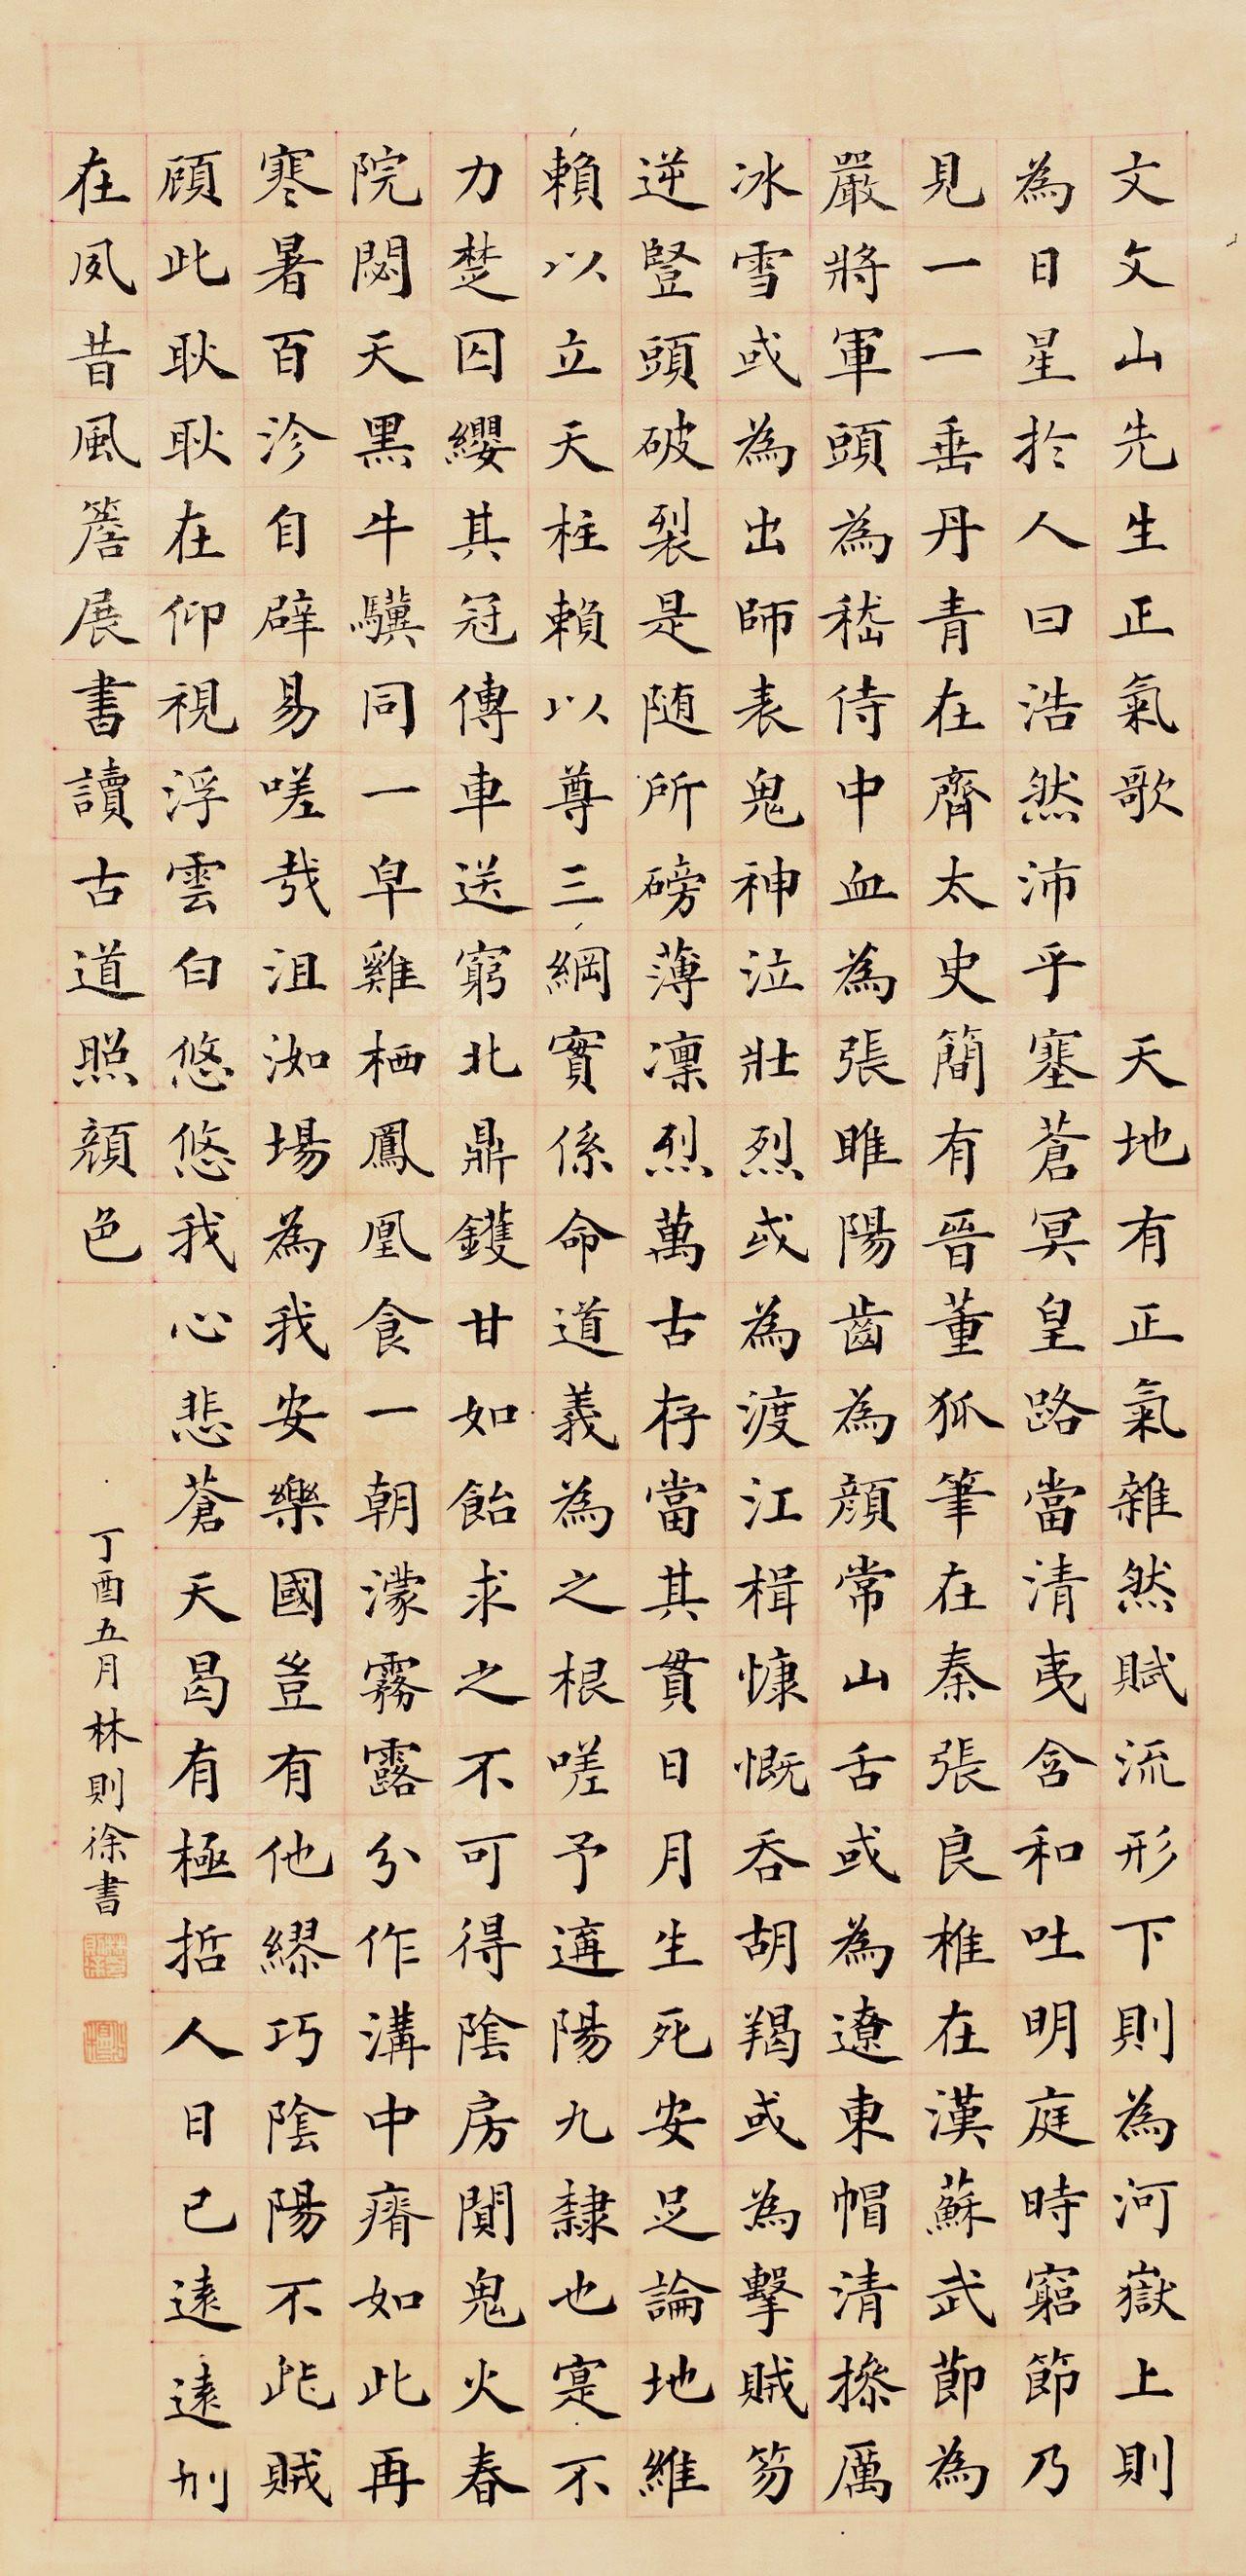 文文山先生正氣歌 天地有正氣雜然賦流形下則為河嶽上則
為日星於人曰浩然沛乎塞蒼冥皇路當清夷含和吐明庭時窮節乃
見一一垂丹青在齊太史簡有晉董狐筆在秦張良椎在漢蘇武節為
嚴將軍頭為嵇侍中血為張睢陽齒為顏常山舌或為遼東帽清操厲
冰雪或為出師表鬼神泣壯烈或為渡江楫慷慨吞胡羯或為擊賊笏
逆豎頭破裂是随所磅薄凛烈萬古存當其貫日月生死安足論地維
賴以立天柱賴以尊三綱實係命道義為之根嗟予遘陽九隸也寔不
力楚囚纓其冠傳車送窮北鼎鑊甘如飴求之不可得陰房闃鬼火春
院閟天黑牛驥同一皁雞栖鳳凰食一朝濛霧露分作溝中瘠如此再
寒暑百沴自辟易嗟哉沮洳場為我安樂國豈有他繆巧陰陽不能賊
顧此耿耿在仰視浮雲白悠悠我心悲蒼天曷有極哲人日已遠遠刑
在夙昔風簷展書讀古道照顏色
丁酉五月林則徐書